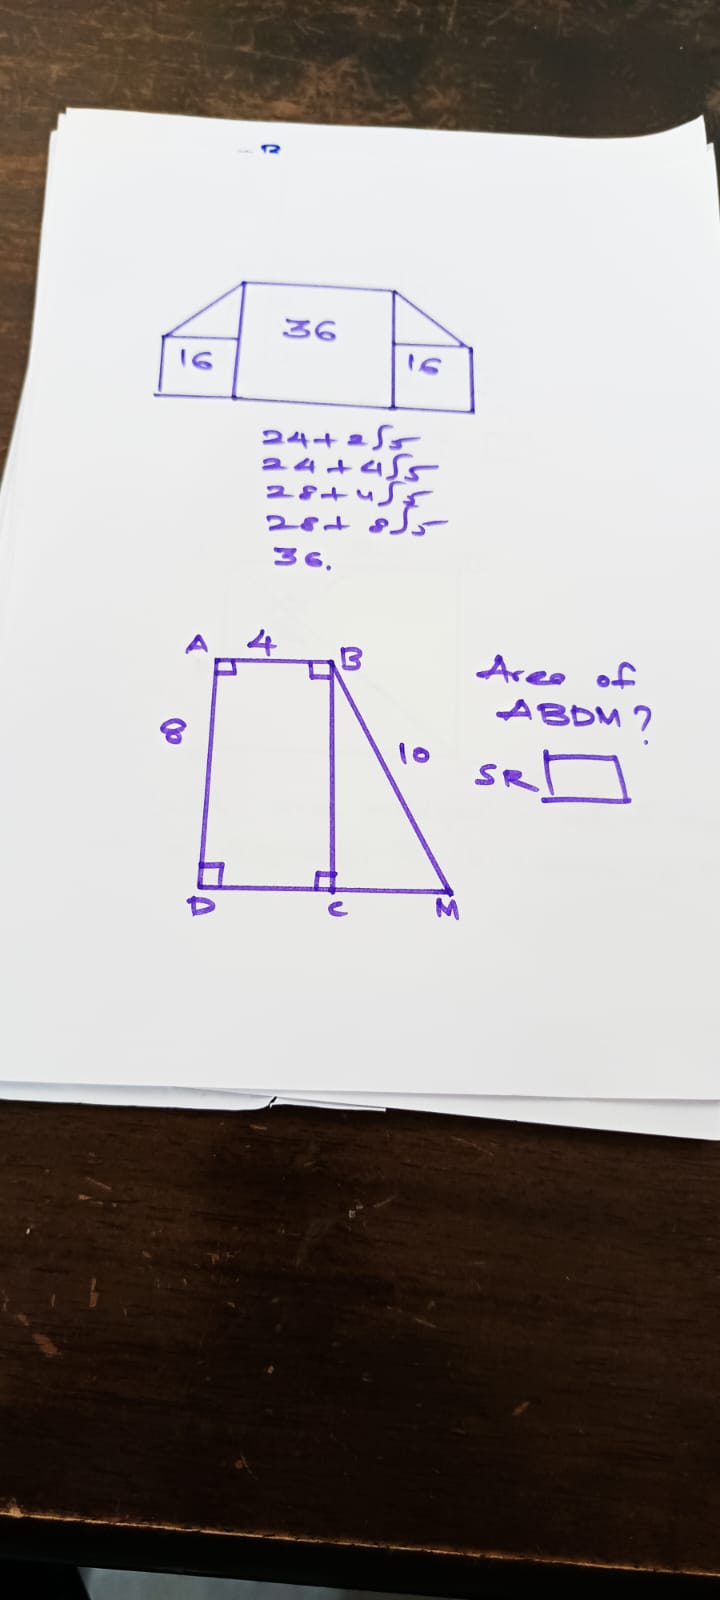 36
16
16
24+2√5
24+4√5
28+4√5
28+8√5
36.
A 4 B
8
10
D C M
Area of
ABDM?
SR